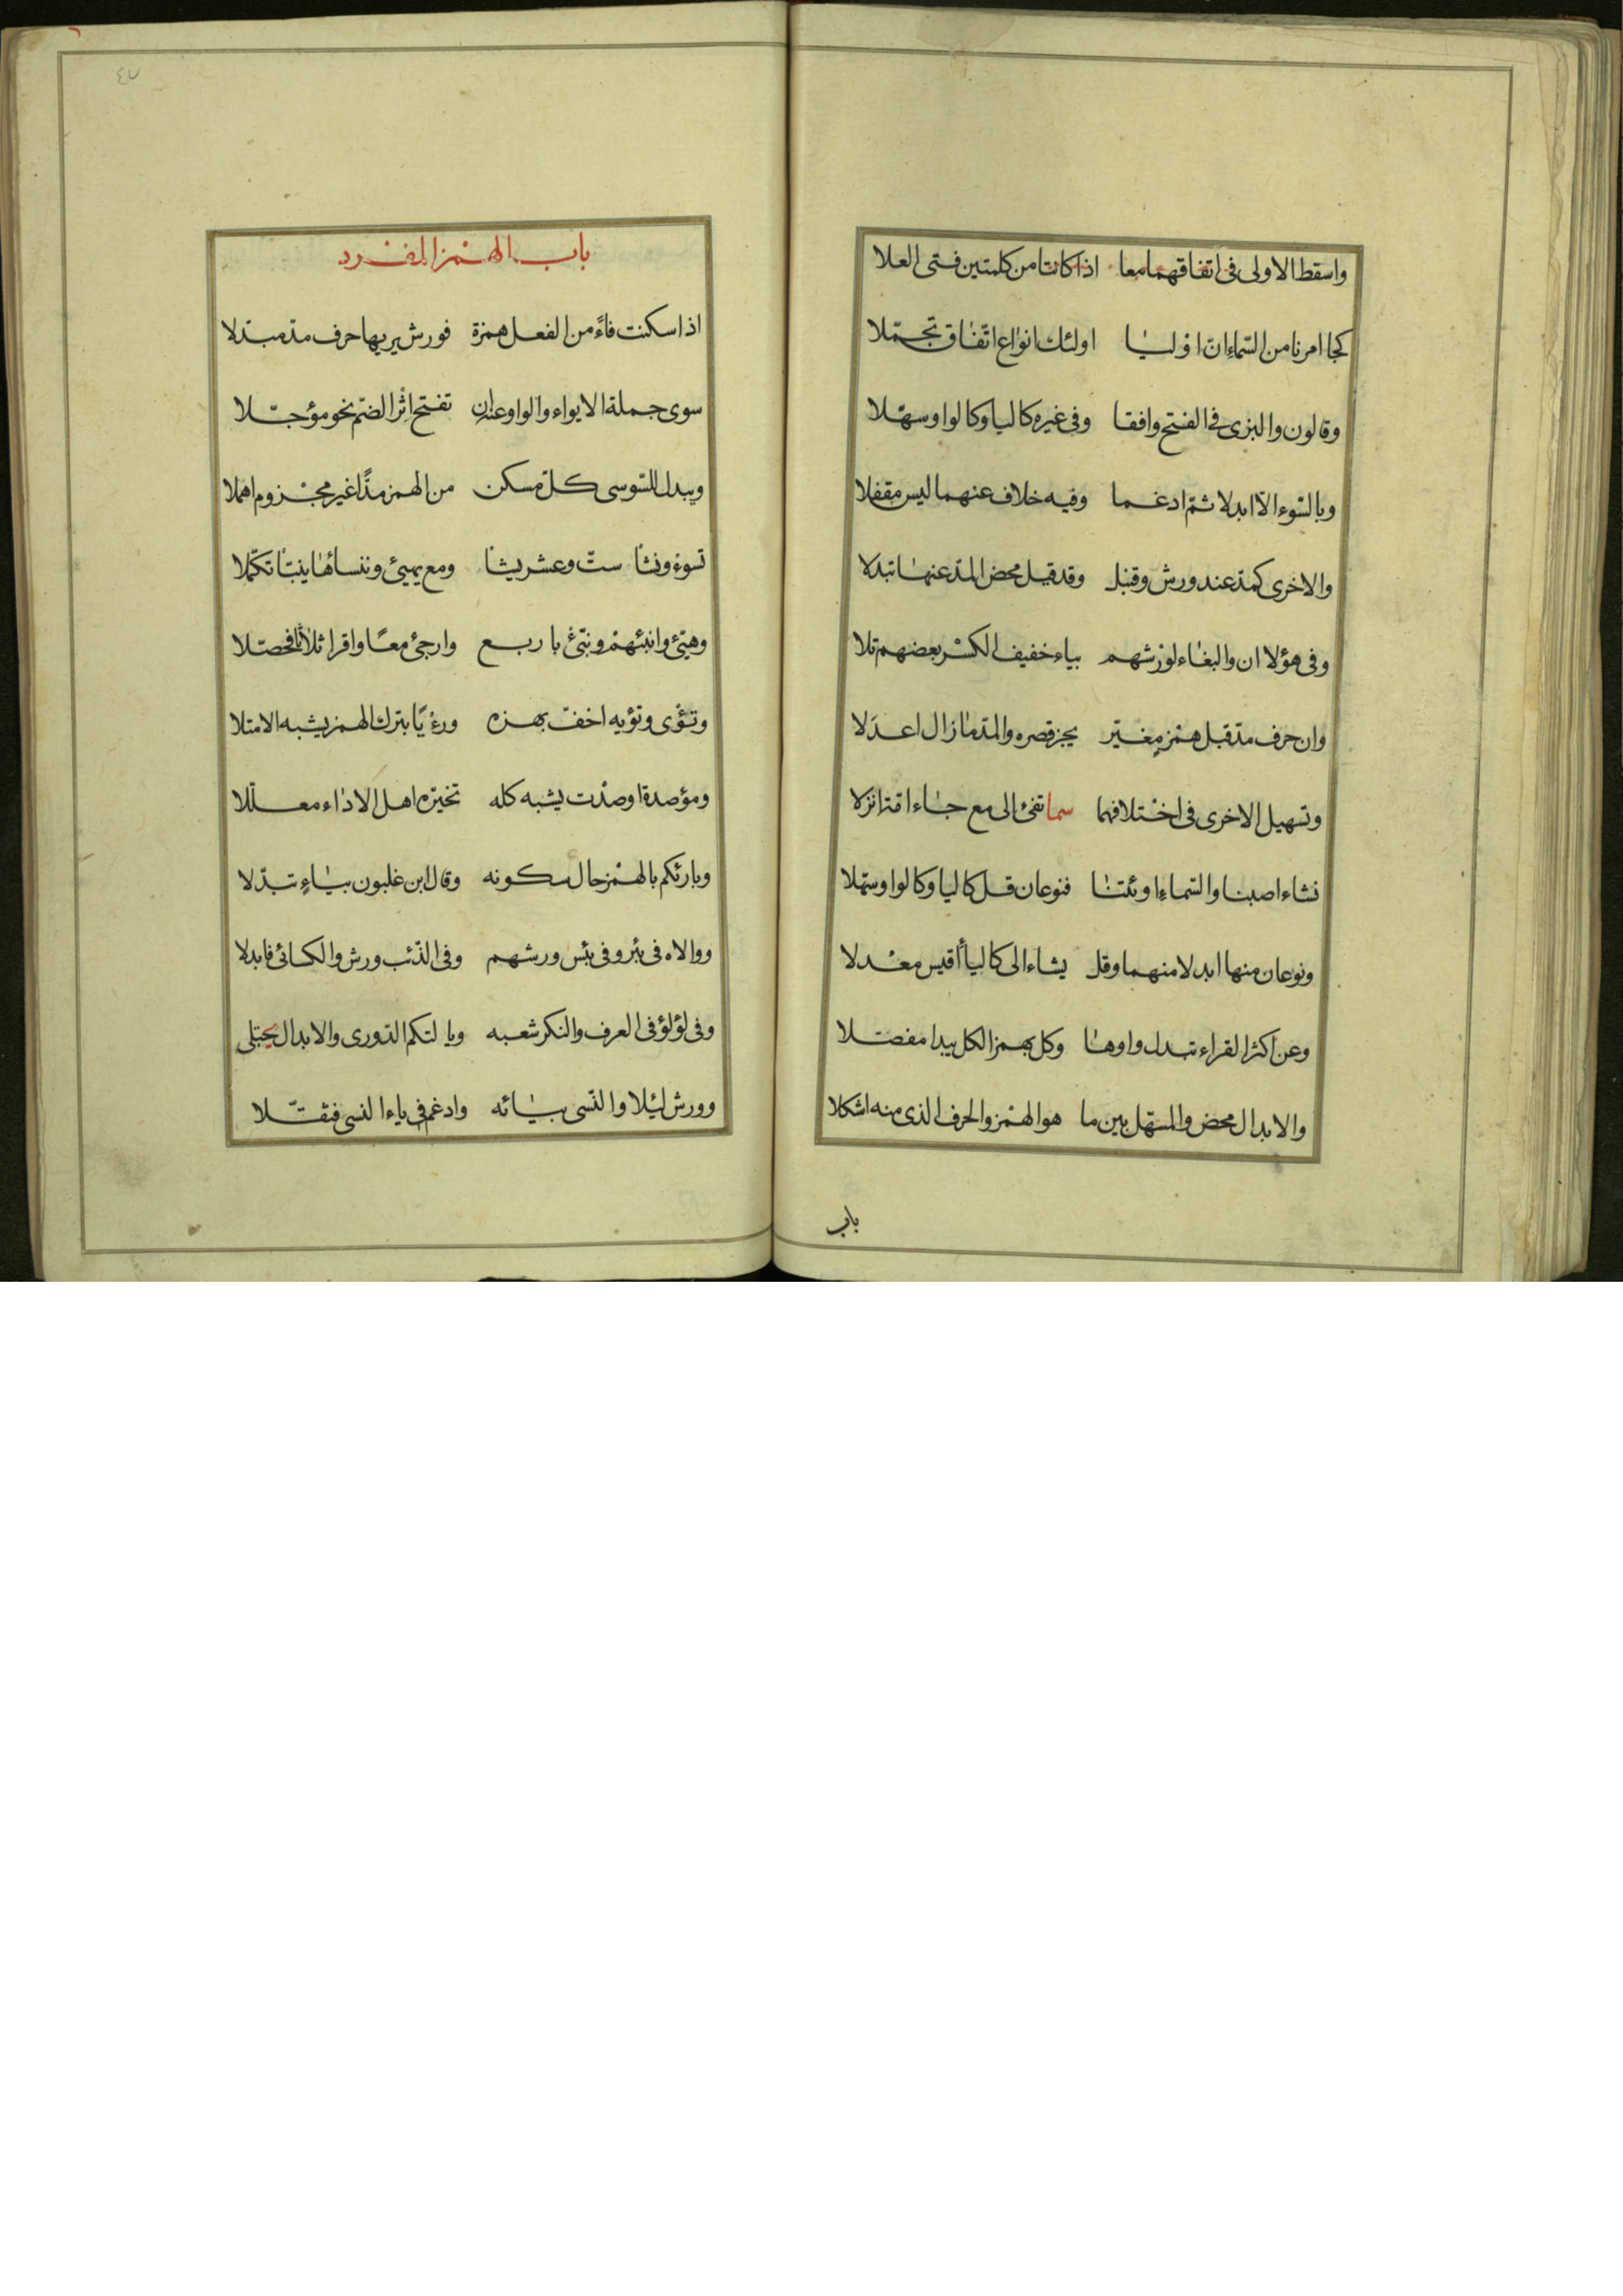 واسقط الاولى فى اتفاقهما معا اذا كانتا من كلمتين فتى العلا
كجا امرنا من السّماء انّ اوليا اولئك انواع اتّفاق تجمّلا
وقالون والبزى فى الفتح وافقا وفى غيره كاليا وكالواو سهّلا
وبالسّوء الّا ابدلا ثمّ ادغما وفيه خلاف عنهما ليس مقفلا
والاخرى كمدّ عند ورش وقنبل وقد قيل محض المدّ عنها تبدلا
وفى هؤلا ان والبغاء لورشهم بياء خفيف الكسر بعضهم تلا
وان حرف مدّ قبل همز مغيّر يجز قصره والمدّ ما زال اعدلا
وتسهيل الاخرى فى اختلافهما سما تفئ الى مع جاء امّة انزلا
نشاء اصبنا والسّماء او ئتنا فنوعان قل كاليا وكالواو سهّلا
ونوعان منها ابدلا منهما وقل يشاء الى كالياء أقيس معدلا
وعن اكثر القراء تبدل واوها وكل بهمز الكل يبدا مفصّلا
والابدال محض والمسهّل بين ما هو الهمز والحرف الذى منه اشكلا
باب
٤٧
باب الهمز المفرد
اذا سكنت فاءً من الفعل همزة فورش يريها حرف مدّ مبدّلا
سوى جملة الايواء والواو عنه ان تفتح اثر الضّم نحو مؤجّلا
ويبدل للسّوسى كلّ مسكن من الهمز مدًّا غير مجزوم اهملا
تسوء ونشا ستّ وعشر يشا ومع يهيئ وننسأها ينبّا تكمّلا
وهيّئ وانبئهم ونبّئ باربع وارجئ معًا واقرا ثلاثا فحصّلا
وتؤى وتؤيه اخفّ بهمزه ورءيًا بترك الهمز يشبه الامتلا
ومؤصدة اوصدت يشبه كله تخيّره اهل الاداء معلّلا
وبارئكم بالهمز حال سكونه وقال ابن غلبون بياءٍ تبدّلا
ووالاه فى بئر وفى بئس ورشهم وفى الذّئب ورش والكسائى فابدلا
وفى لؤلؤ فى العرف والنكر شعبه ويالتكم الدّورى والابدال يجتلى
وورش لئلا والنّسى بيائه وادغم فى ياء النسى فثقّلا